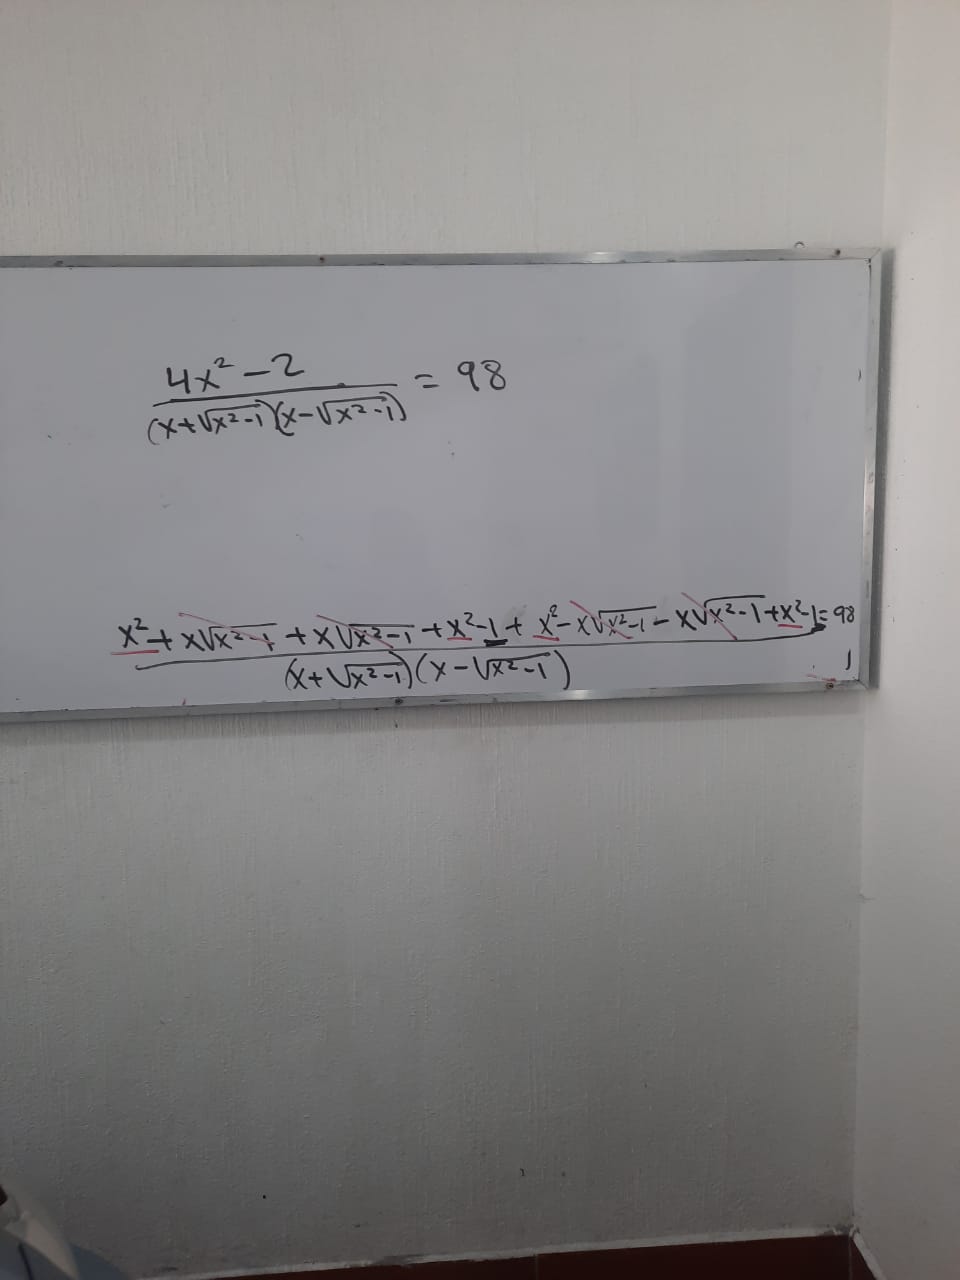 4x² - 2
(x+√x²-1)(x-√x²-1) = 98
x² + x√x²-1 + x√x²-1 + x²-1 + x² - x√x²-1 - x√x²-1 + x²-1 = 98
(x+√x²-1)(x-√x²-1) 1